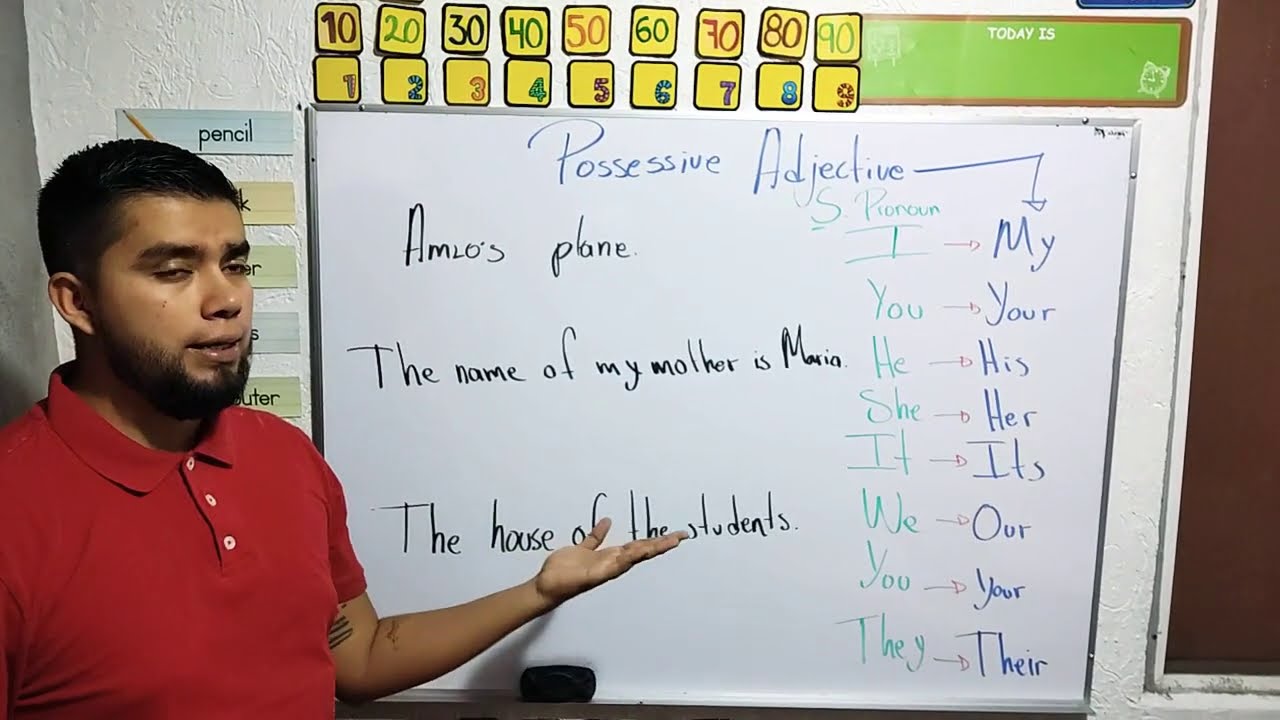 10 20 30 40 50 60 70 80 90
1 2 3 4 5 6 7 8 9
TODAY IS
pencil
k
er
s
uter
Possessive Adjective
S. Pronoun
I → My
You → Your
He → His
She → Her
It → Its
We → Our
You → Your
They → Their
AMLO's plane.
The name of my mother is Maria.
The house of the students.